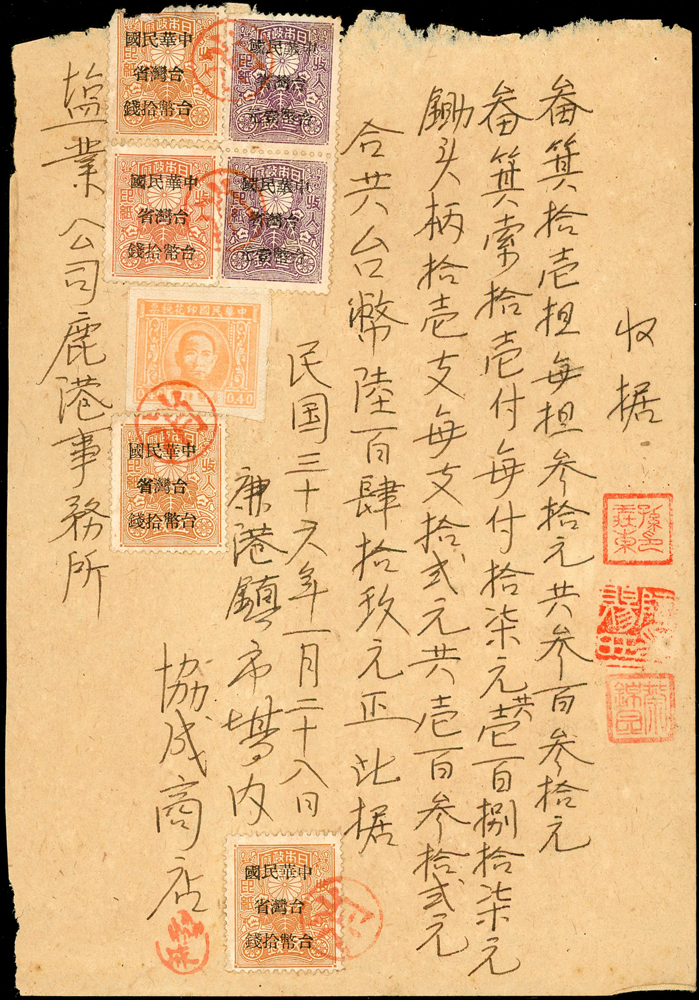 收据
畚箕拾壱担每担参拾元共参百参拾元
畚箕索拾壱付每付拾柒元共壱百捌拾柒元
鋤头柄拾壱支每支拾弍元共壱百参拾弍元
合共台幣陸百肆拾玖元正此据
民国三十六年一月二十八日
鹿港鎮市場内
協成商店
塩業公司鹿港事務所
國民華中
省灣台
錢拾幣台
國民華中
省灣台
元壹幣台
國民華中
省灣台
錢拾幣台
國民華中
省灣台
元壹幣台
票稅花印國民華中
0.40
國民華中
省灣台
錢拾幣台
國民華中
省灣台
錢拾幣台